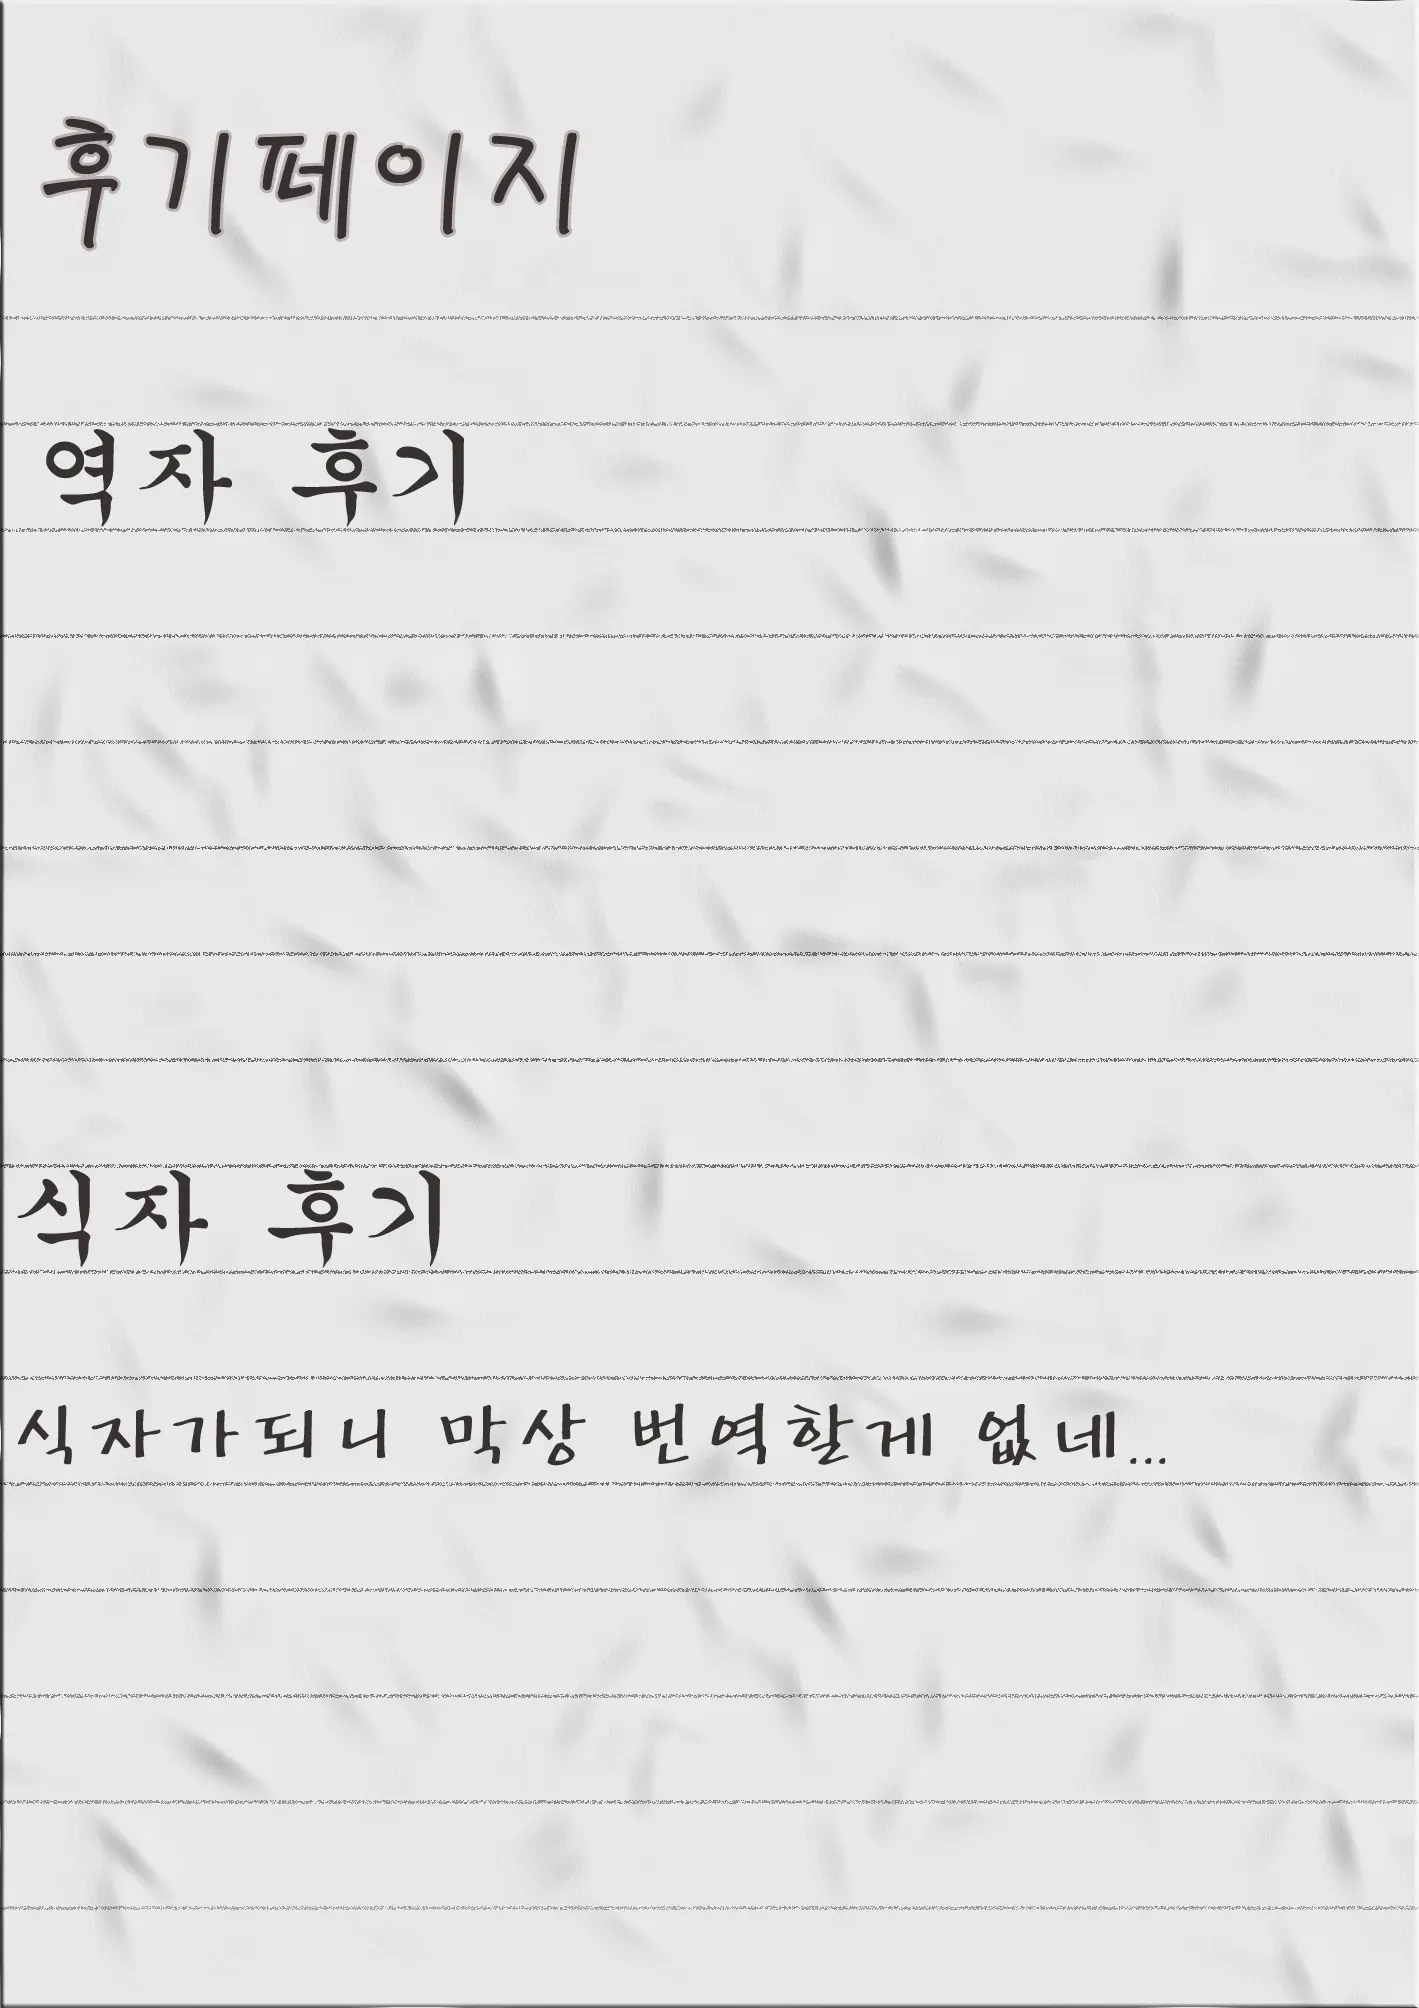 후기페이지
역자 후기
식자 후기
식자가되니 막상 번역할게 없네...